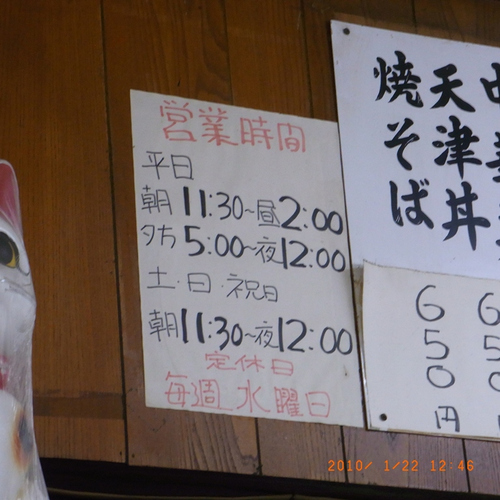 営業時間
平日
朝11:30～昼2:00
夕方5:00～夜12:00
土・日・祝日
朝11:30～夜12:00
定休日
毎週水曜日
天津丼
焼そば
650円
2010/ 1/22 12:46